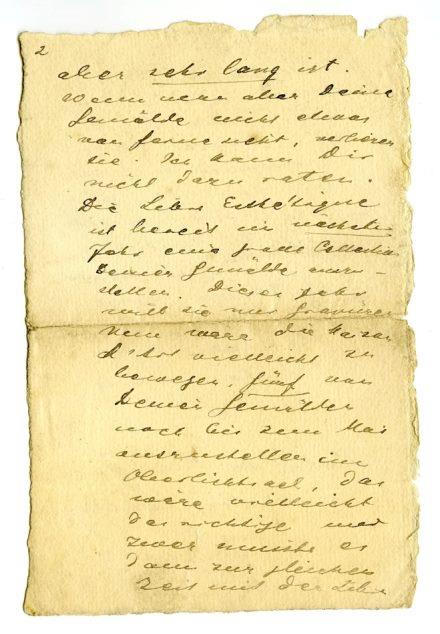 2
aber sehr lang ist.
Wenn man aber Deine
Gemälde nicht etwas
von ferne sieht, verlieren
sie. Ich kann Dir
nicht dazu raten.
Die Libre Esthétique
ist bereit im nächsten
Jahr eine grosse Collection
Deiner Gemälde auszu-
stellen. Dieses Jahr
will sie nur Gravüren
nun wäre die Maison
d'Art vielleicht zu
bewegen, fünf von
Deinen Gemälden
noch bis zum Mai
auszustellen im
Oberlichtsaal, das
wäre vielleicht
das richtige und
zwar müsste es
dann zur gleichen
Zeit mit der Libre